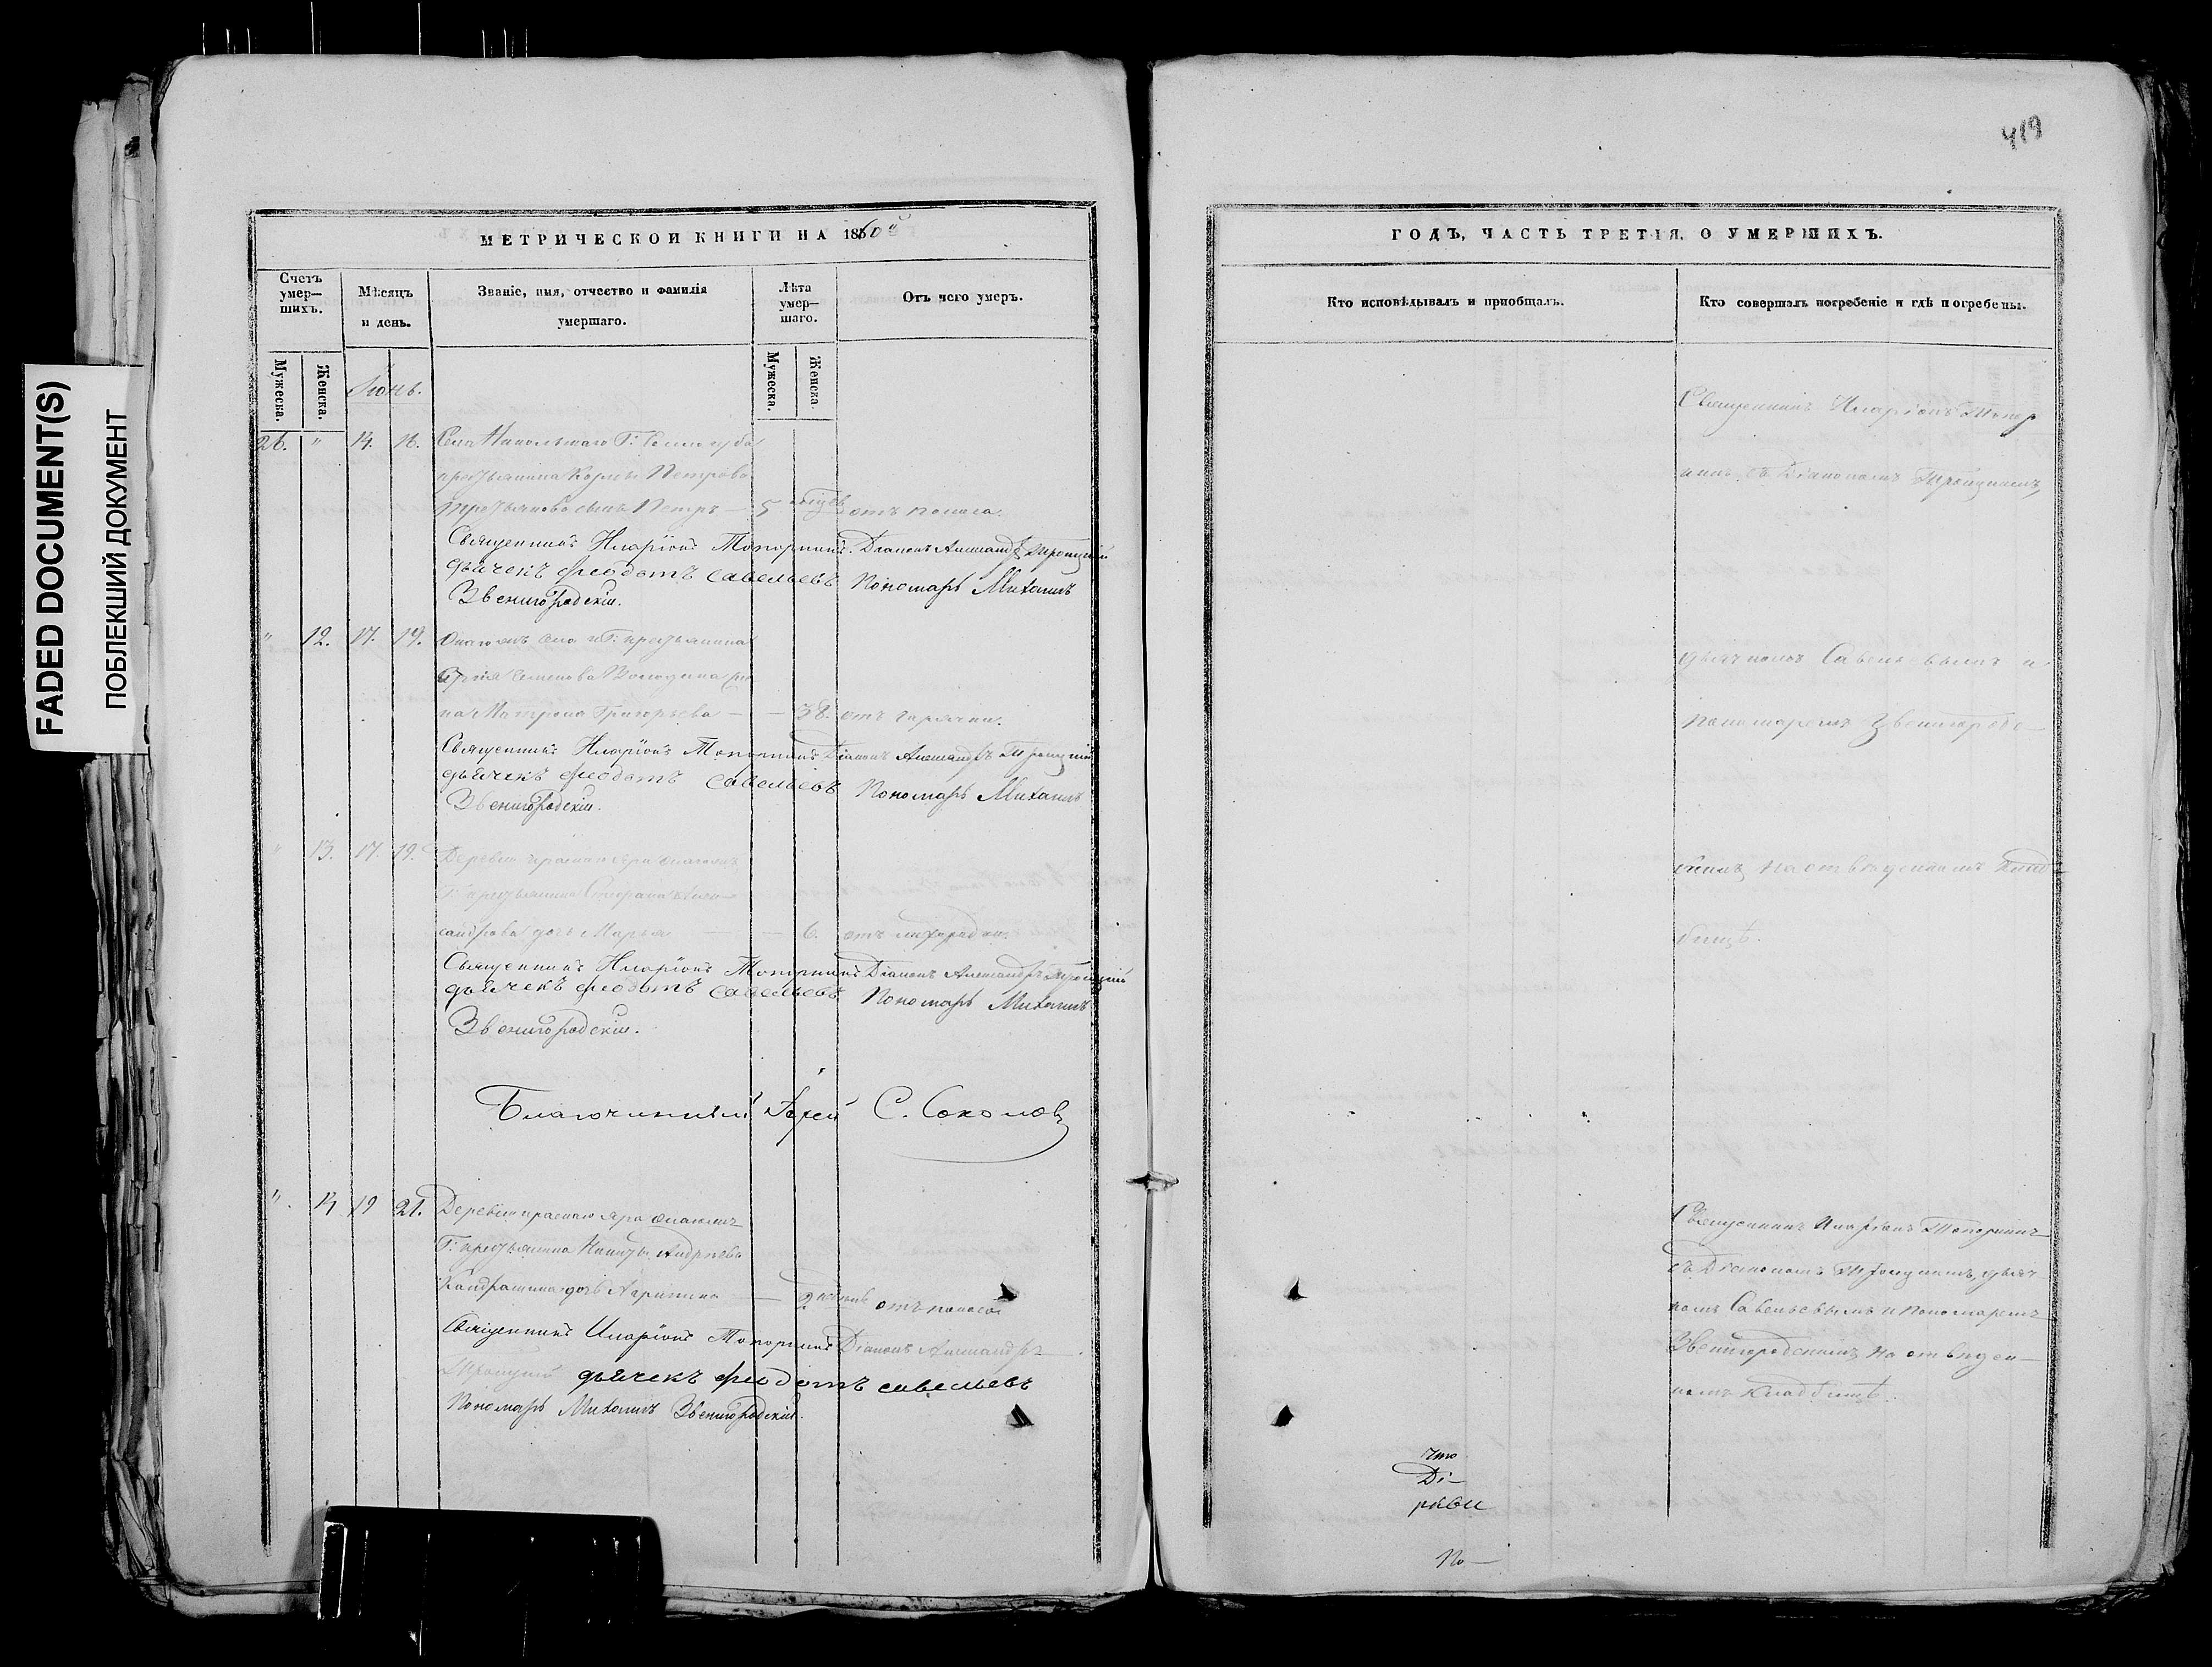 FADED DOCUMENT(S)
ПОБЛЕКШИЙ ДОКУМЕНТ
МЕТРИЧЕСКОЙ КНИГИ НА 1860й
Счетъ умер— шихъ.
Мѣсяцъ и день.
Званіе, имя, отчество и фамилія умершаго.
Лѣта умер— шаго.
Отъ чего умеръ.
Мужеска.
Женска.
Мужеска.
Женска.
Іюнь.
26. " 14. 16. Села Никольскаго Г:
крестьянина Петрова
сынъ Петръ — 5 отъ поноса.
Священникъ Иларіонъ Топорнинъ. Діаконъ Александръ Троицкій
дьячекъ Феодотъ Савельевъ Пономарь Михаилъ
Звенигородскій.
" 12. 17. 19. Онагожъ села Г: крестьянина
Семенова же
на Матрона Григорьева — — 38. отъ горячки.
Священникъ Иларіонъ Топорнинъ Діаконъ Александръ Троицкій
дьячекъ Феодотъ Савельевъ Пономарь Михаилъ
Звенигородскій.
" 13. 17. 19. Деревни Краснаго яра онагожъ
Г: крестьянина Степана Алек—
сандрова дочь Марья — 6. отъ лихорадки.
Священникъ Иларіонъ Топорнинъ Діаконъ Александръ Троицкій
дьячекъ Феодотъ Савельевъ Пономарь Михаилъ
Звенигородскій.
Благочинный Іерей С. Соколовъ
" 14 19 21. Деревни краснаго яра онагожъ
Г: крестьянина Никиты Андреева
Кандрашина дочь Агрипина — 2 отъ поноса
Священникъ Иларіонъ Топорнинъ Діаконъ Александръ
Троицкій дьячекъ Феодотъ Савельевъ
Пономарь Михаилъ Звенигородскій.
419
ГОДЪ, ЧАСТЬ ТРЕТІЯ, О УМЕРШИХЪ.
Кто исповѣдывалъ и пріобщалъ.
Кто совершалъ погребеніе и гдѣ погребены.
Священникъ Иларіонъ Топор
нинъ съ Діакономъ Троицкимъ,
дьячкомъ Савельевымъ и
пономаремъ Звенигородс—
кимъ на отведенномъ клад—
бищѣ.
Священникъ Иларіонъ Топорнинъ
съ Діакономъ Троицкимъ, дьяч
комъ Савельевымъ и Пономаремъ
Звенигородскимъ на отведен—
номъ кладбищѣ.
что
Ді—
рѣви
По—